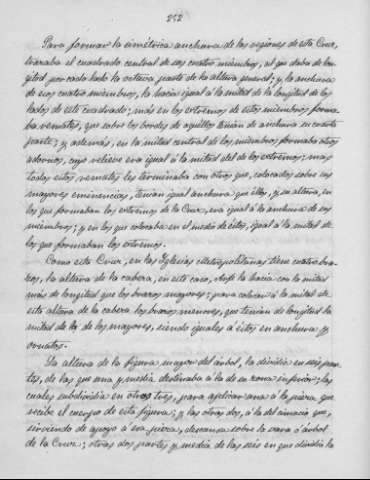 252
Para formar la simétrica anchura de las regiones de esta Cruz,
trazaba el cuadrado central de sus cuatro miembros, al que daba de lon-
gitud por cada lado la octava parte de la altura general; y la anchura
de esos cuatro miembros, la hacía igual a la mitad de la longitud de los
lados de este cuadrado; más en los extremos de estos miembros forma-
ba remates, que sobre los bordes de aquellos tenían de anchura su cuarta
parte; y además, en la mitad central de los miembros formaba otros
adornos, cuyo relieve era igual á la mitad del de los extremos; mas
todos estos remates les terminaba con otros que, colocados sobre sus
mayores eminencias, tenían igual anchura que ellos, y su altura, en
los que formaban los extremos de la Cruz, era igual á la anchura de sus
miembros; y en los que colocaba en el medio de estos, igual á la mitad de
los que formaban los extremos.
Como esta Cruz, en las Iglesias Metropolitanas tiene cuatro bra-
zos, la altura de la cabeza, en este caso, Arfe la hacía con la mitad
más de longitud que los brazos mayores; para colocar á la mitad de
esta altura de la cabeza los brazos menores, que tenían de longitud la
mitad de la de los mayores, siendo iguales á estos en anchura y
ornatos.
La altura de la figura mayor del árbol, la dividía en seis par-
tes, de las que una y media destinaba á la de su zona inferior; las
cuales subdividía en otras tres, para aplicar una á la pieza que
recibe el cuerpo de esta figura; y las otras dos, á la del
que,
sirviendo de apoyo á esa pieza, descansa sobre la vara ó árbol
de la Cruz; otras dos partes y media de las seis en que dividía la